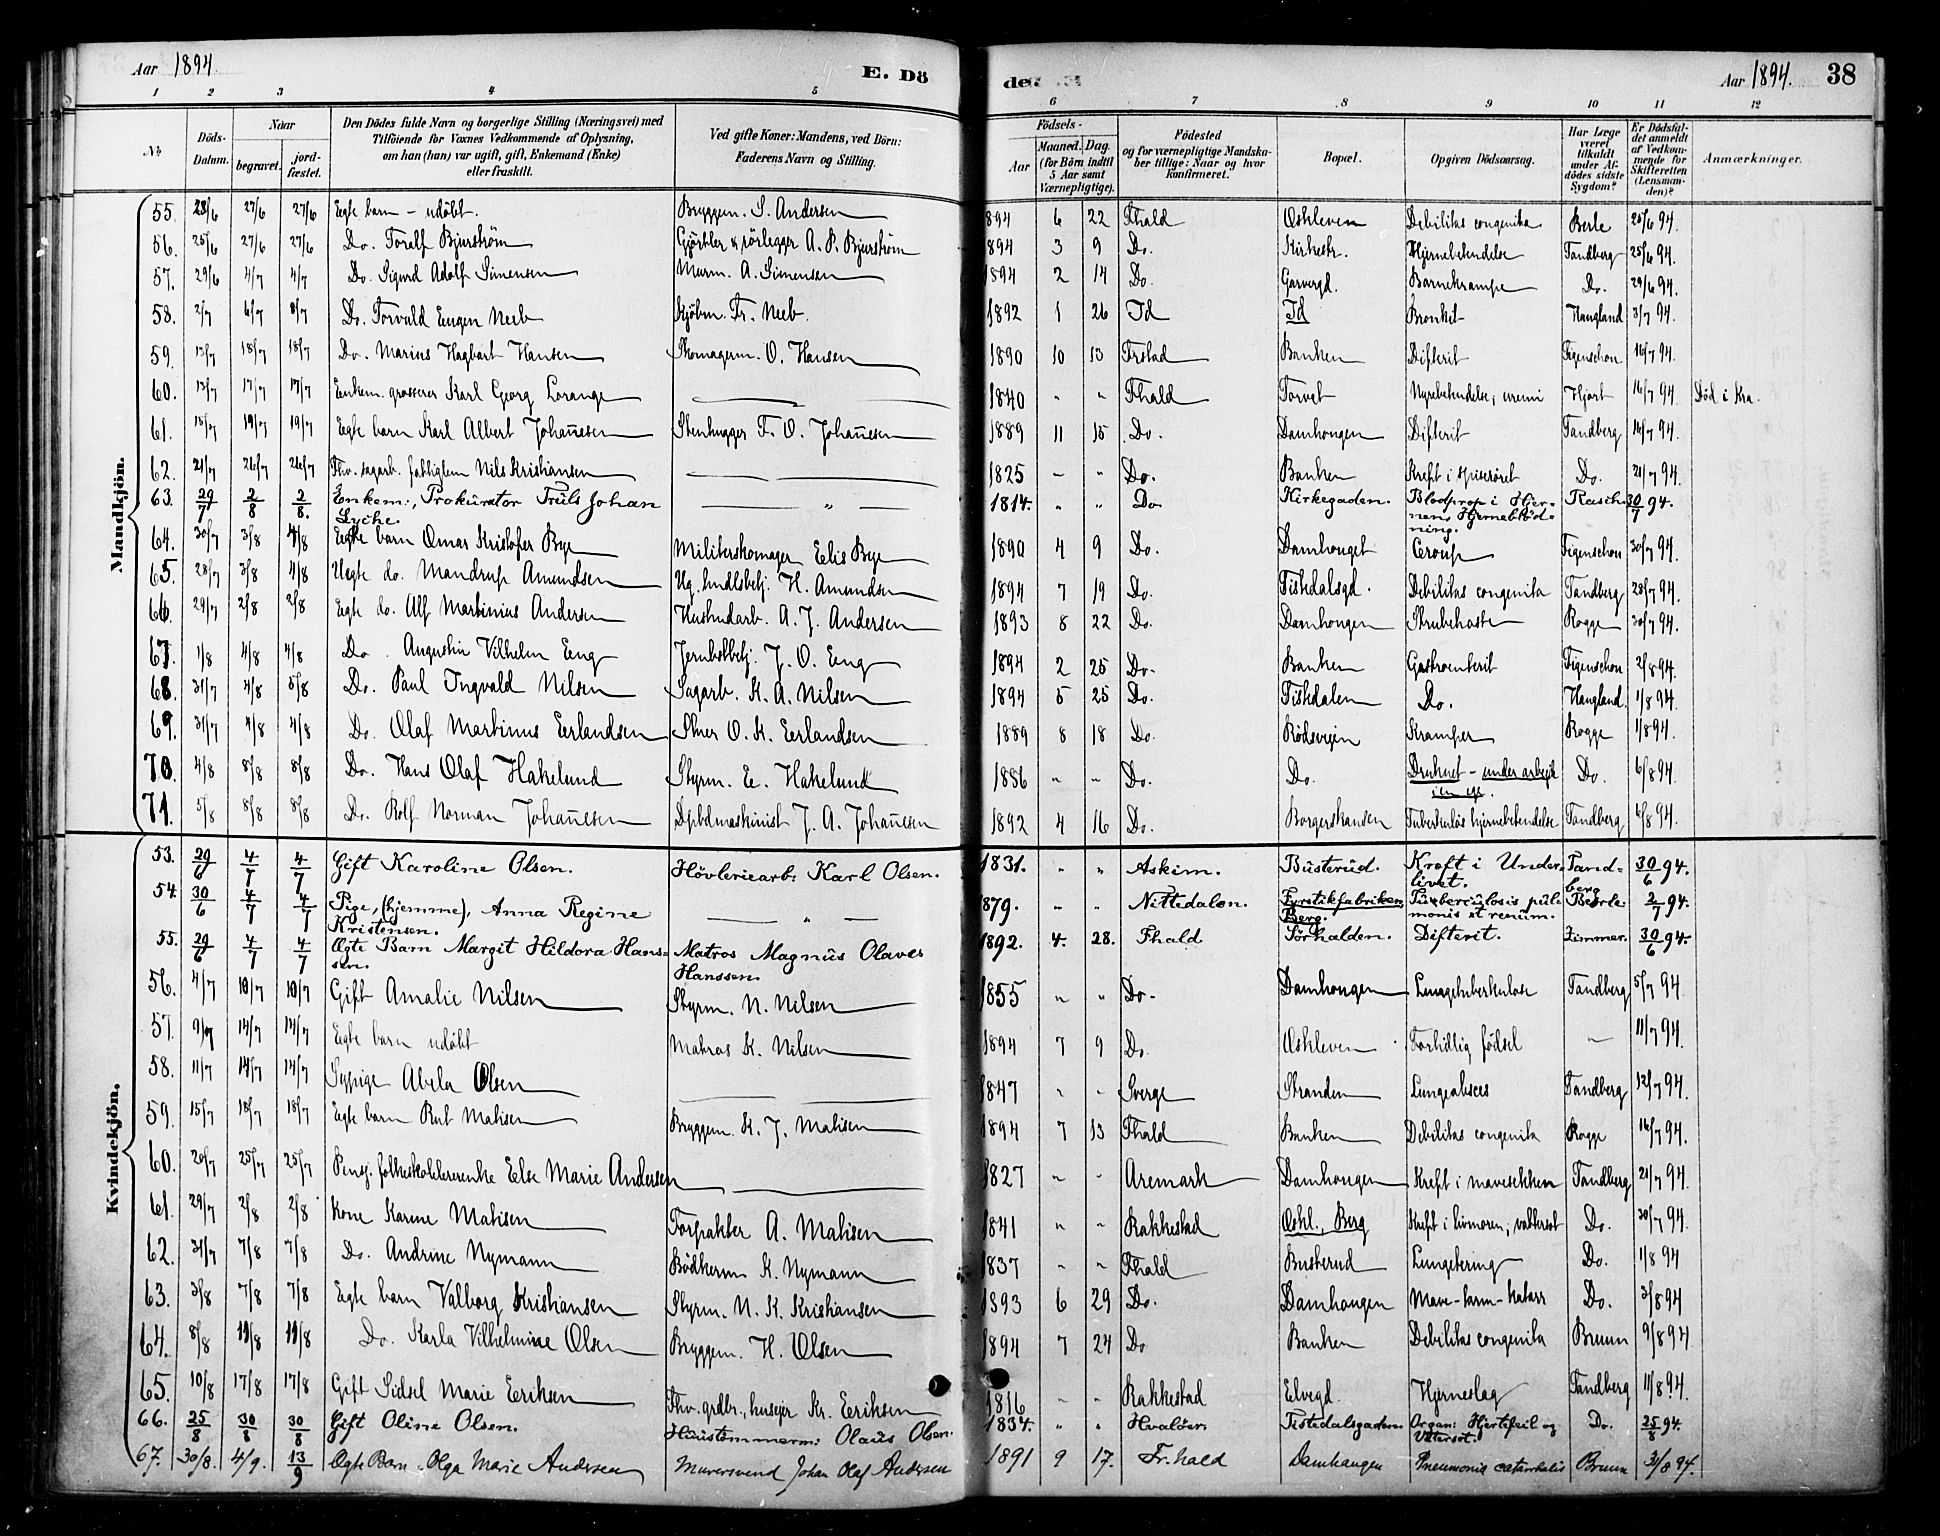 Aar 1894. E. Dö
de. Aar 1894. 38
1 2 3 4 5 6 7 8 9 10 11 12
No Döds-Datum. Naar begravet. jordfæstet. Den Dödes fulde Navn og borgerlige Stilling (Næringsvei) med Tilföiende for Voxnes Vedkommende af Oplysning, om han (hun) var ugift, gift, Enkemand (Enke) eller fraskilt. Ved gifte Koner: Mandens, ved Börn: Faderens Navn og Stilling. Födsels- Aar Maaned. Dag. (for Börn indtil 5 Aar samt Værnepligtige). Födested og for værnepligtige Mandskaber tillige: Naar og hvor konfirmeret. Bopæl. Opgiven Dödsaarsag. Har Læge været tilkaldt under Afdödes sidste Sygdom? Er Dödsfaldet anmeldt af Vedkommende for Skifteretten (Lensmanden)? Anmærkninger.
Mandkjön.
55. 23/6 27/6 27/6 Egte barn - udøbt. Bryggem. S. Andersen 894 6 22 Fhald Oskleven Debilitas congenita Berle 25/6 94.
56. 25/6 27/6 27/6 Do. Toralf Bjurström Gjørtler & rörlegger A. P. Bjurström 894 3 9 Do. Kirkestr. Hjernebetendelse Tandberg 25/6 94.
57. 29/6 4/7 4/7 Do. Sigurd Adolf Simensen Murm. A. Simensen 1894 2 14 Do. Garvergd. Barnekrampe Do. 29/6 94.
58. 2/7 6/7 8/7 Do. Torvald Eugen Neeb Kjöbm. Fr. Neeb. 1892 1 26 Id Id Bronkit Haugland 3/7 94.
59. 13/7 18/7 18/7 Do. Marius Hagbart Hansen Skomagerm. O. Hansen 1890 10 13 Frstad Banken Difterit Figenschou 16/7 94.
60. 13/7 17/7 17/7 Enkem. grosserer Karl Georg Lorange 1840 " " Fhald Torvet Nyrebetendelse; uremi Hjort 16/7 94 Död i Kra.
61. 15/7 19/7 19/7 Egte barn Karl Albert Johanesen Stenhugger F. O. Johanesen 1889 11 15 Do. Damhougen Difterit Tandberg 16/7 94.
62. 21/7 26/7 26/7 Fhv. sagarb. fattiglem Nils Kristiansen 1825 - " Do. Banken Kreft i spiserøret Do. 21/7 94.
63. 29/7 2/8 2/8. Enkem:, Prokurator Truls Johan Lyche. " 1814. " " Do Kirkegaden. Blodprop i Hjernen, Hjerneblödning. Rasch 30/7 94.
64. 30/7 3/8 4/8 Egte barn Omar Kristofer Bye Militerskomager Elis Bye 1890 4 9 Do. Damhouget Croup Figenschou 30/7 94.
65. 28/7 3/8 4/8 Uegte do. Mandrup Amundsen Ug. handlsbetj. H. Amundsen 1894 7 19 Do. Tistedalsgd. Debilitas congenita Tandberg 28/7 94.
66. 29/7 2/8 2/8 Egte do. Alf Martinius Andersen Kusthudarb. A. J. Andersen 1893 8 22 Do. Damhougen Strubehoste Rogge 30/7 94.
67. 1/8 4/8 4/8 Do. Augustin Vilhelm Eeng Jernbetbetj. J. O. Eeng 1894 2 25 Do. Banken Gastroenterit Figenschou 2/8 94.
68. 31/7 4/8 5/8 Do. Paul Ingvald Nilsen Sagarb. K. A. Nilsen 1894 5 25 Do. Tistedalen Do. Haugland. 1/8 94.
69. 31/7 4/8 4/8 Do. Olaf Martinus Eerlandsen Skuer O. K. Eerlandsen 1889 8 18 Do. Rödsveien Kramper Rogge 1/8 94.
70. 4/8 8/8 8/8 Do. Hans Olaf Hakelund Styrm. E. Hakelund 1886 " " Do. Do. Druknet - under arbejde Do. 6/8 94.
71. 5/8 8/8 8/8 Do. Rolf Norman Johanesen Dpbdmaskinist J. A. Johanesen 1892 4 16 Do. Borgerskansen Tuberkuløs hjernebetendelse Tandberg 6/8 94.
Kvindekjön.
53. 29/6 4/7 4/7 Gift Karoline Olsen. Hövleriearb: Karl Olsen. 1831. " " Askim. Busterud. Kræft i Underlivet. Tandberg 30/6 94.
54. 30/6 4/7 4/7 Pige, (hjemme), Anna Regine Kristensen. " 1879. " " Nittedalen. Fyrstikfabriken, Berg. Tuberculosis pulmonis et renum. Beerle. 2/7 94.
55. 29/6 4/7 4/7 Ægte Barn Margit Hildora Hanssen. Matros Magnus Olaves Hanssen. 1892. 4. 28. Fhald Sörhalden. Difterit. Zimmer. 30/6 94.
56. 4/7 10/7 10/7 Gift Amalie Nilsen Styrm. N. Nilsen 1855 " " Do. Damhougen Lungetuberkulose Tandberg 5/7 94.
57. 9/7 14/7 14/7 Egte barn udöbt Matros K. Nilsen 1894 7 9 Do Oskleven Forhidlig födsel - 11/7 94.
58. 11/7 14/7 14/7 Sypige Abela Olsen 1847 " " Sverge Stranden Lungeabsces Tandberg 12/7 94.
59. 15/7 18/7 18/7 Egte barn Rut Matisen Bryggem. K. J. Matisen 1894 7 13 Fhald Banken Debilitas congenita Rogge 16/7 94.
60. 20/7 25/7 25/7 Pensj. folkeskolelererenke Else Marie Andersen 1827 " " Aremark Damhougen Kreft i mavesekken Tandberg 21/7 94.
61. 29/7 2/8 2/8 Kone Karine Matisen Forpakter A. Matisen 1841 " " Rakkestad Oskl., Berg Kreft i livmoren; vattersot Do. 30/7 94.
62. 31/7 7/8 7/8 Do. Andrine Nymann Bödkerm K. Nymann 1837 " " Fhald Busterud Lungetering Do. 1/8 94
63. 3/8 7/8 7/8 Egte barn Valborg Kristiansen Styrm. N. K. Kristiansen 1893 6 29 Do. Damhougen Mave-tarm-katarr Do. 3/8 94
64. 8/8 19/8 19/8 Do. Karla Vilhelmine Olsen Bryggem. H. Olsen 1894 7 24 Do Banken Debilitas congenita Bruun 9/8 94
65. 10/8 17/8 17/8 Gift Sidsel Marie Eeriksen Fhv. grdbr., husejer Kr. Eeriksen 1816 " " Rakkestad Elvegd. Hjerneslag Tandberg 11/8 94.
66. 25/8 30/8 30/8 Gift Oline Olsen. Huustømmerm: Olaus Olsen. 1834. " " Hvalöer. Tistedalsgaden. Organ: Hjertefeil og Vatersot. Do. 25/8 94.
67. 30/8. 4/9. 13/9 Ægte Barn Olga Marie Andersen Murersvend Johan Olaf Andersen 1891 9 17. Fr.hald Damhaugen Pneumonia catarrhalis Bruun 31/8 94.